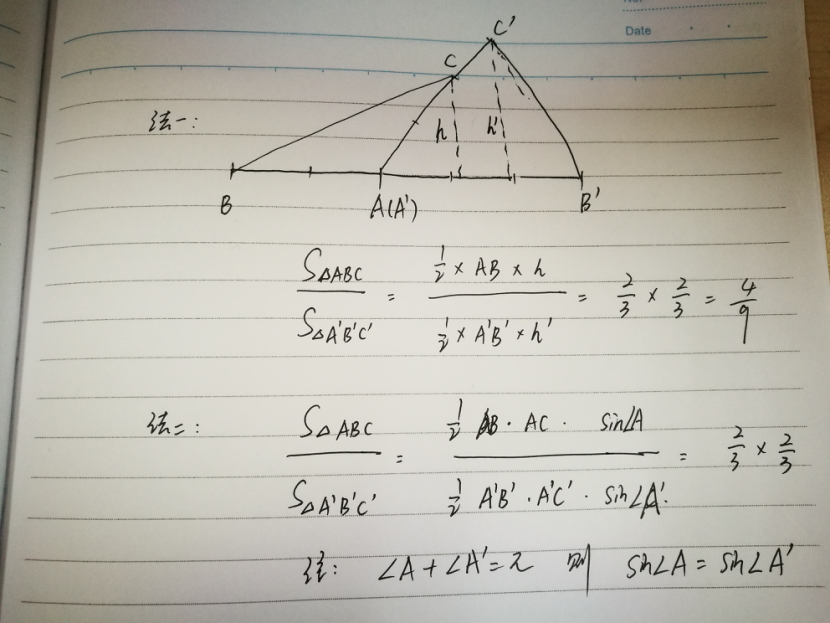 Date
C'
C
法一:
h h'
B A(A') B'
S△ABC / S△A'B'C' = 1/2 × AB × h / 1/2 × A'B' × h' = 2/3 × 2/3 = 4/9
法二: S△ABC / S△A'B'C' = 1/2 AB · AC · sin∠A / 1/2 A'B' · A'C' · sin∠A' = 2/3 × 2/3
注: ∠A + ∠A' = π 则 sin∠A = sin∠A'